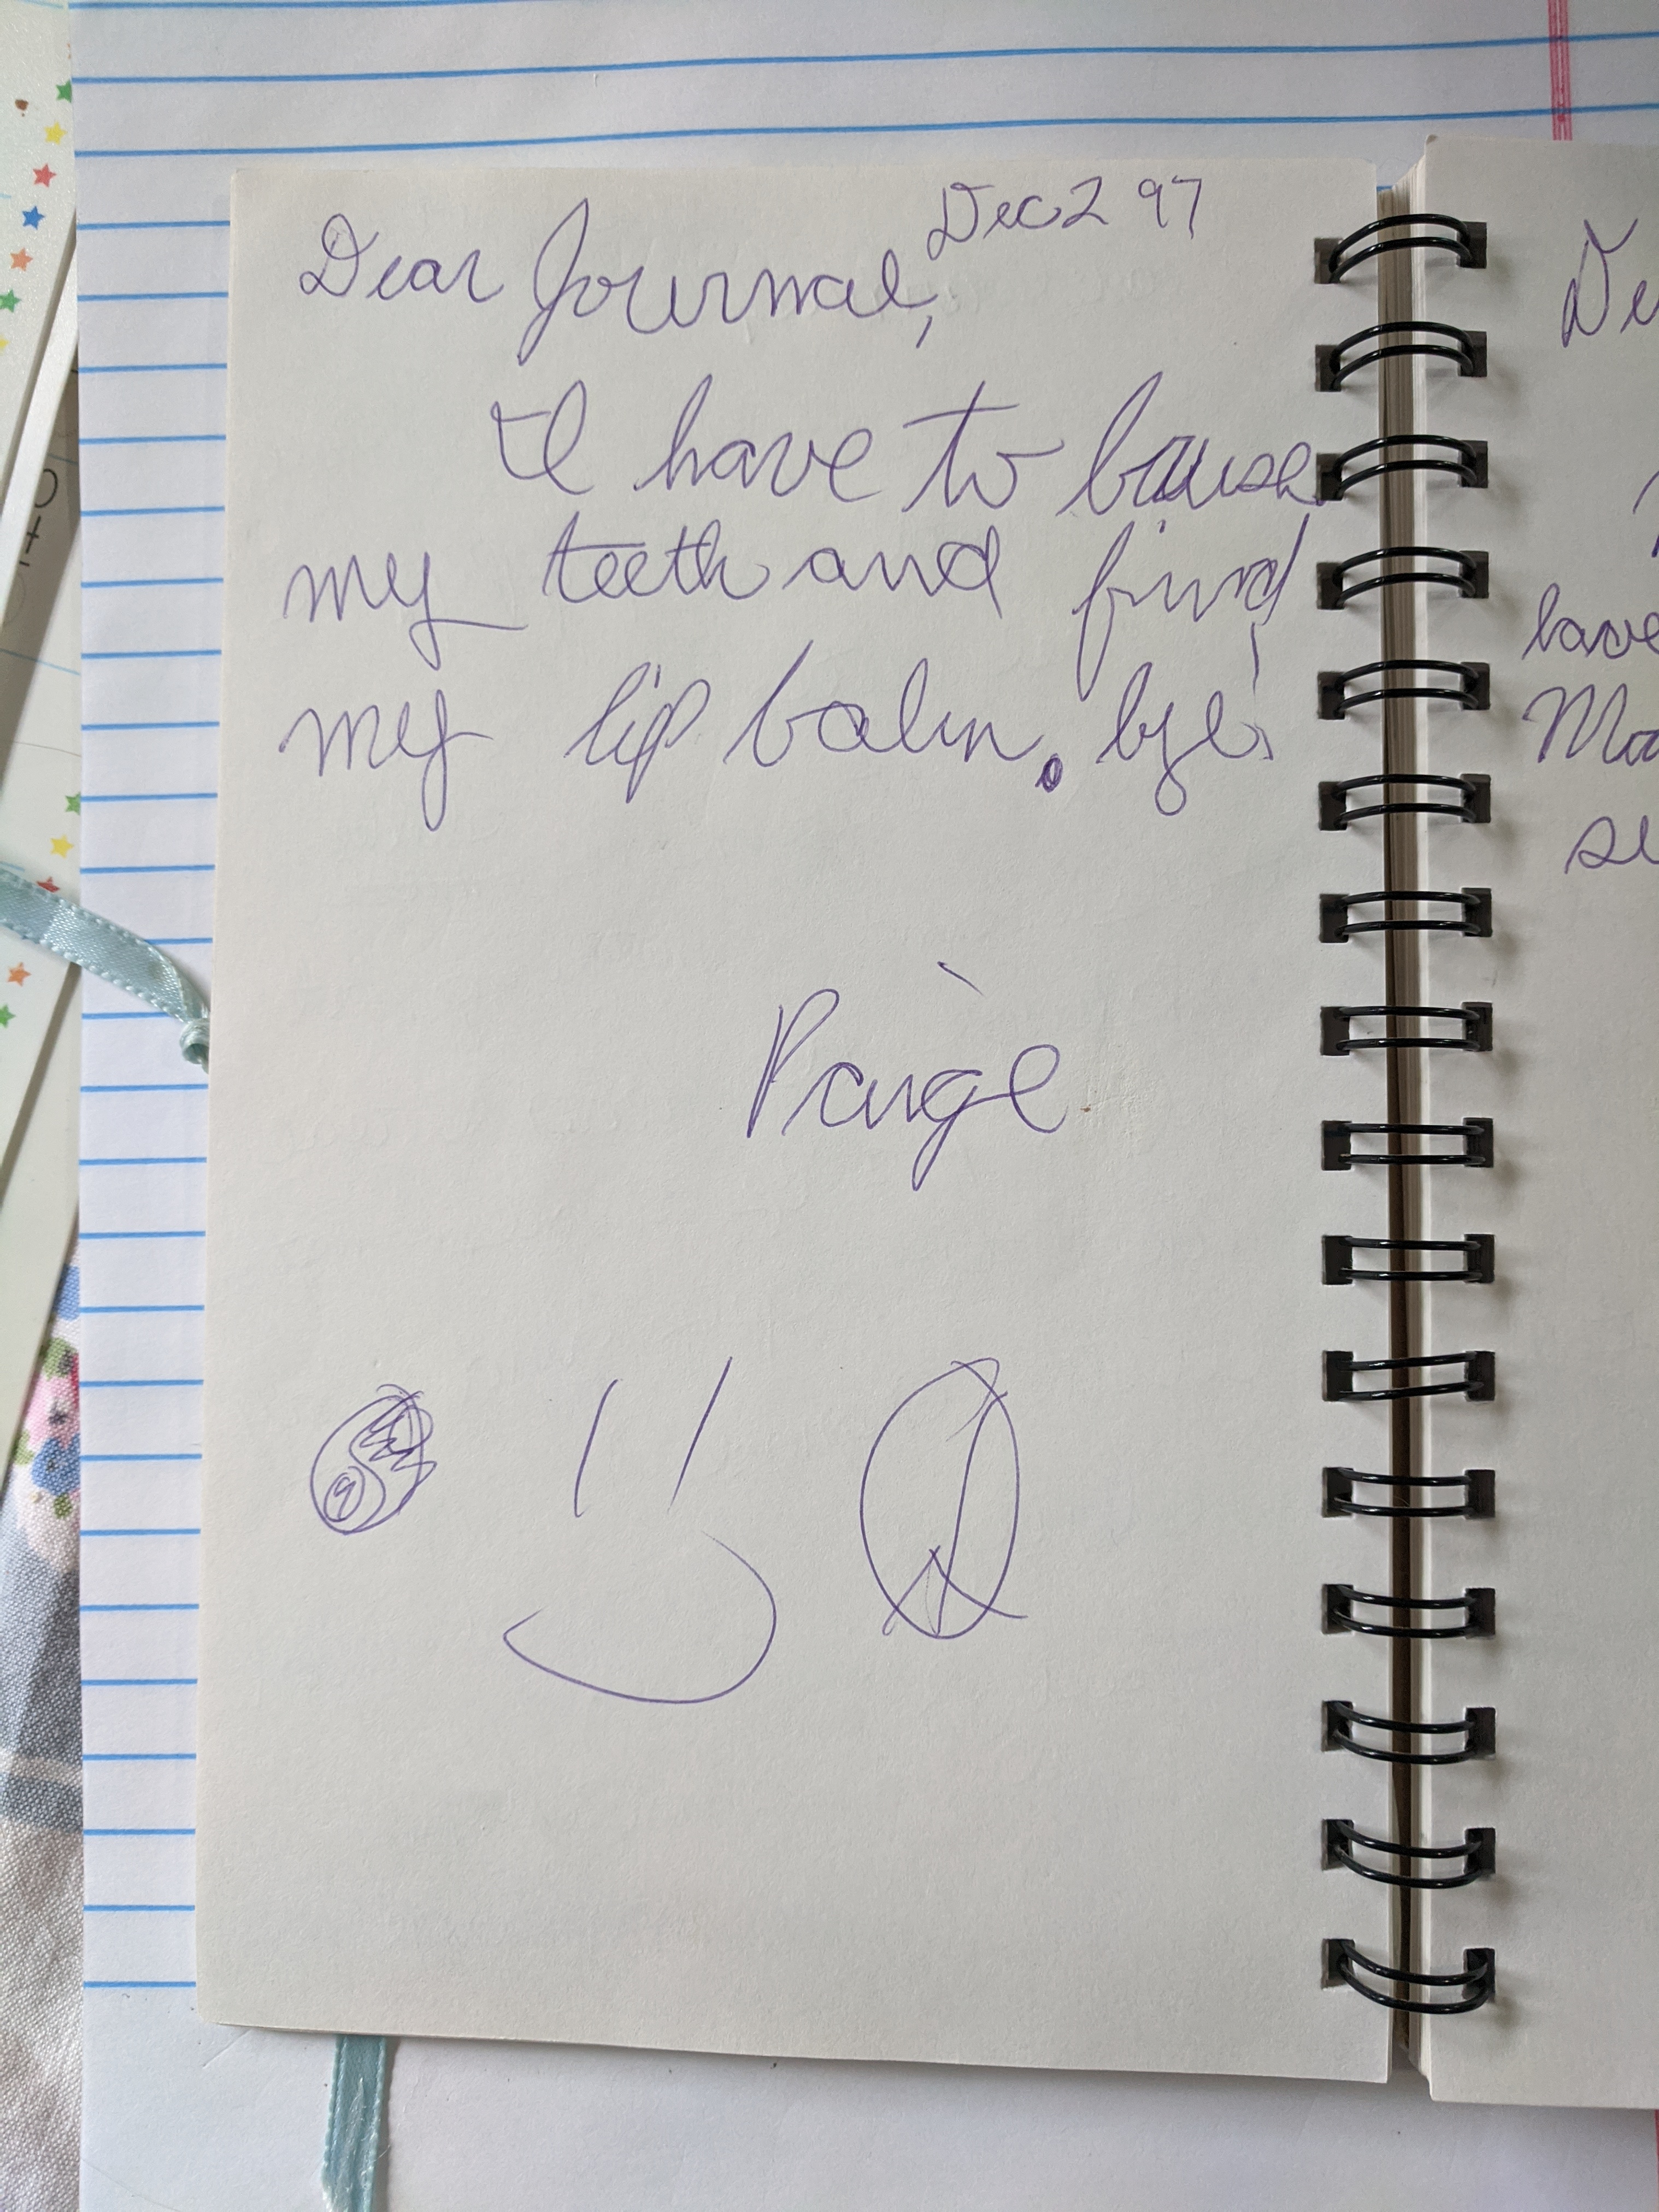 Dec 2 97
Dear Journal,
I have to
my teeth and find
my lip balm. bye!
Paige
De
have